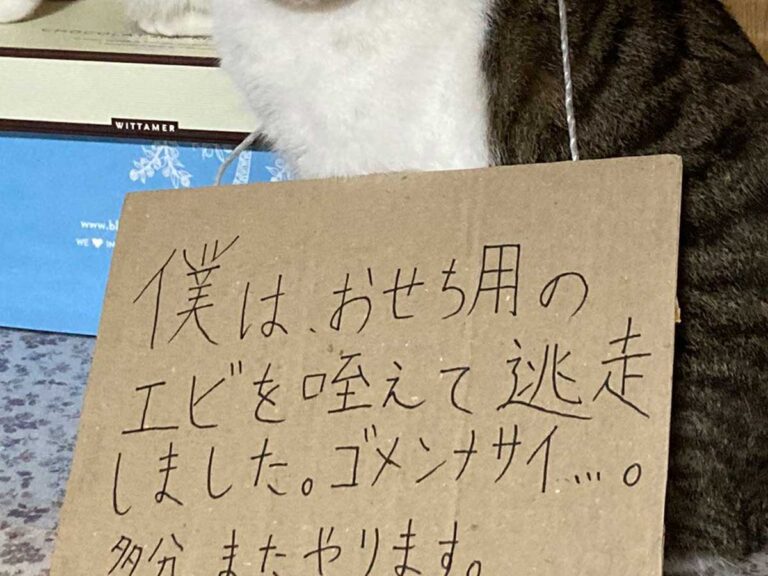 WITTAMER
www.bl
WE ♥ IM
僕は、おせち用の
エビを咥えて逃走
しました。ゴメンナサイ…。
多分、またやります。